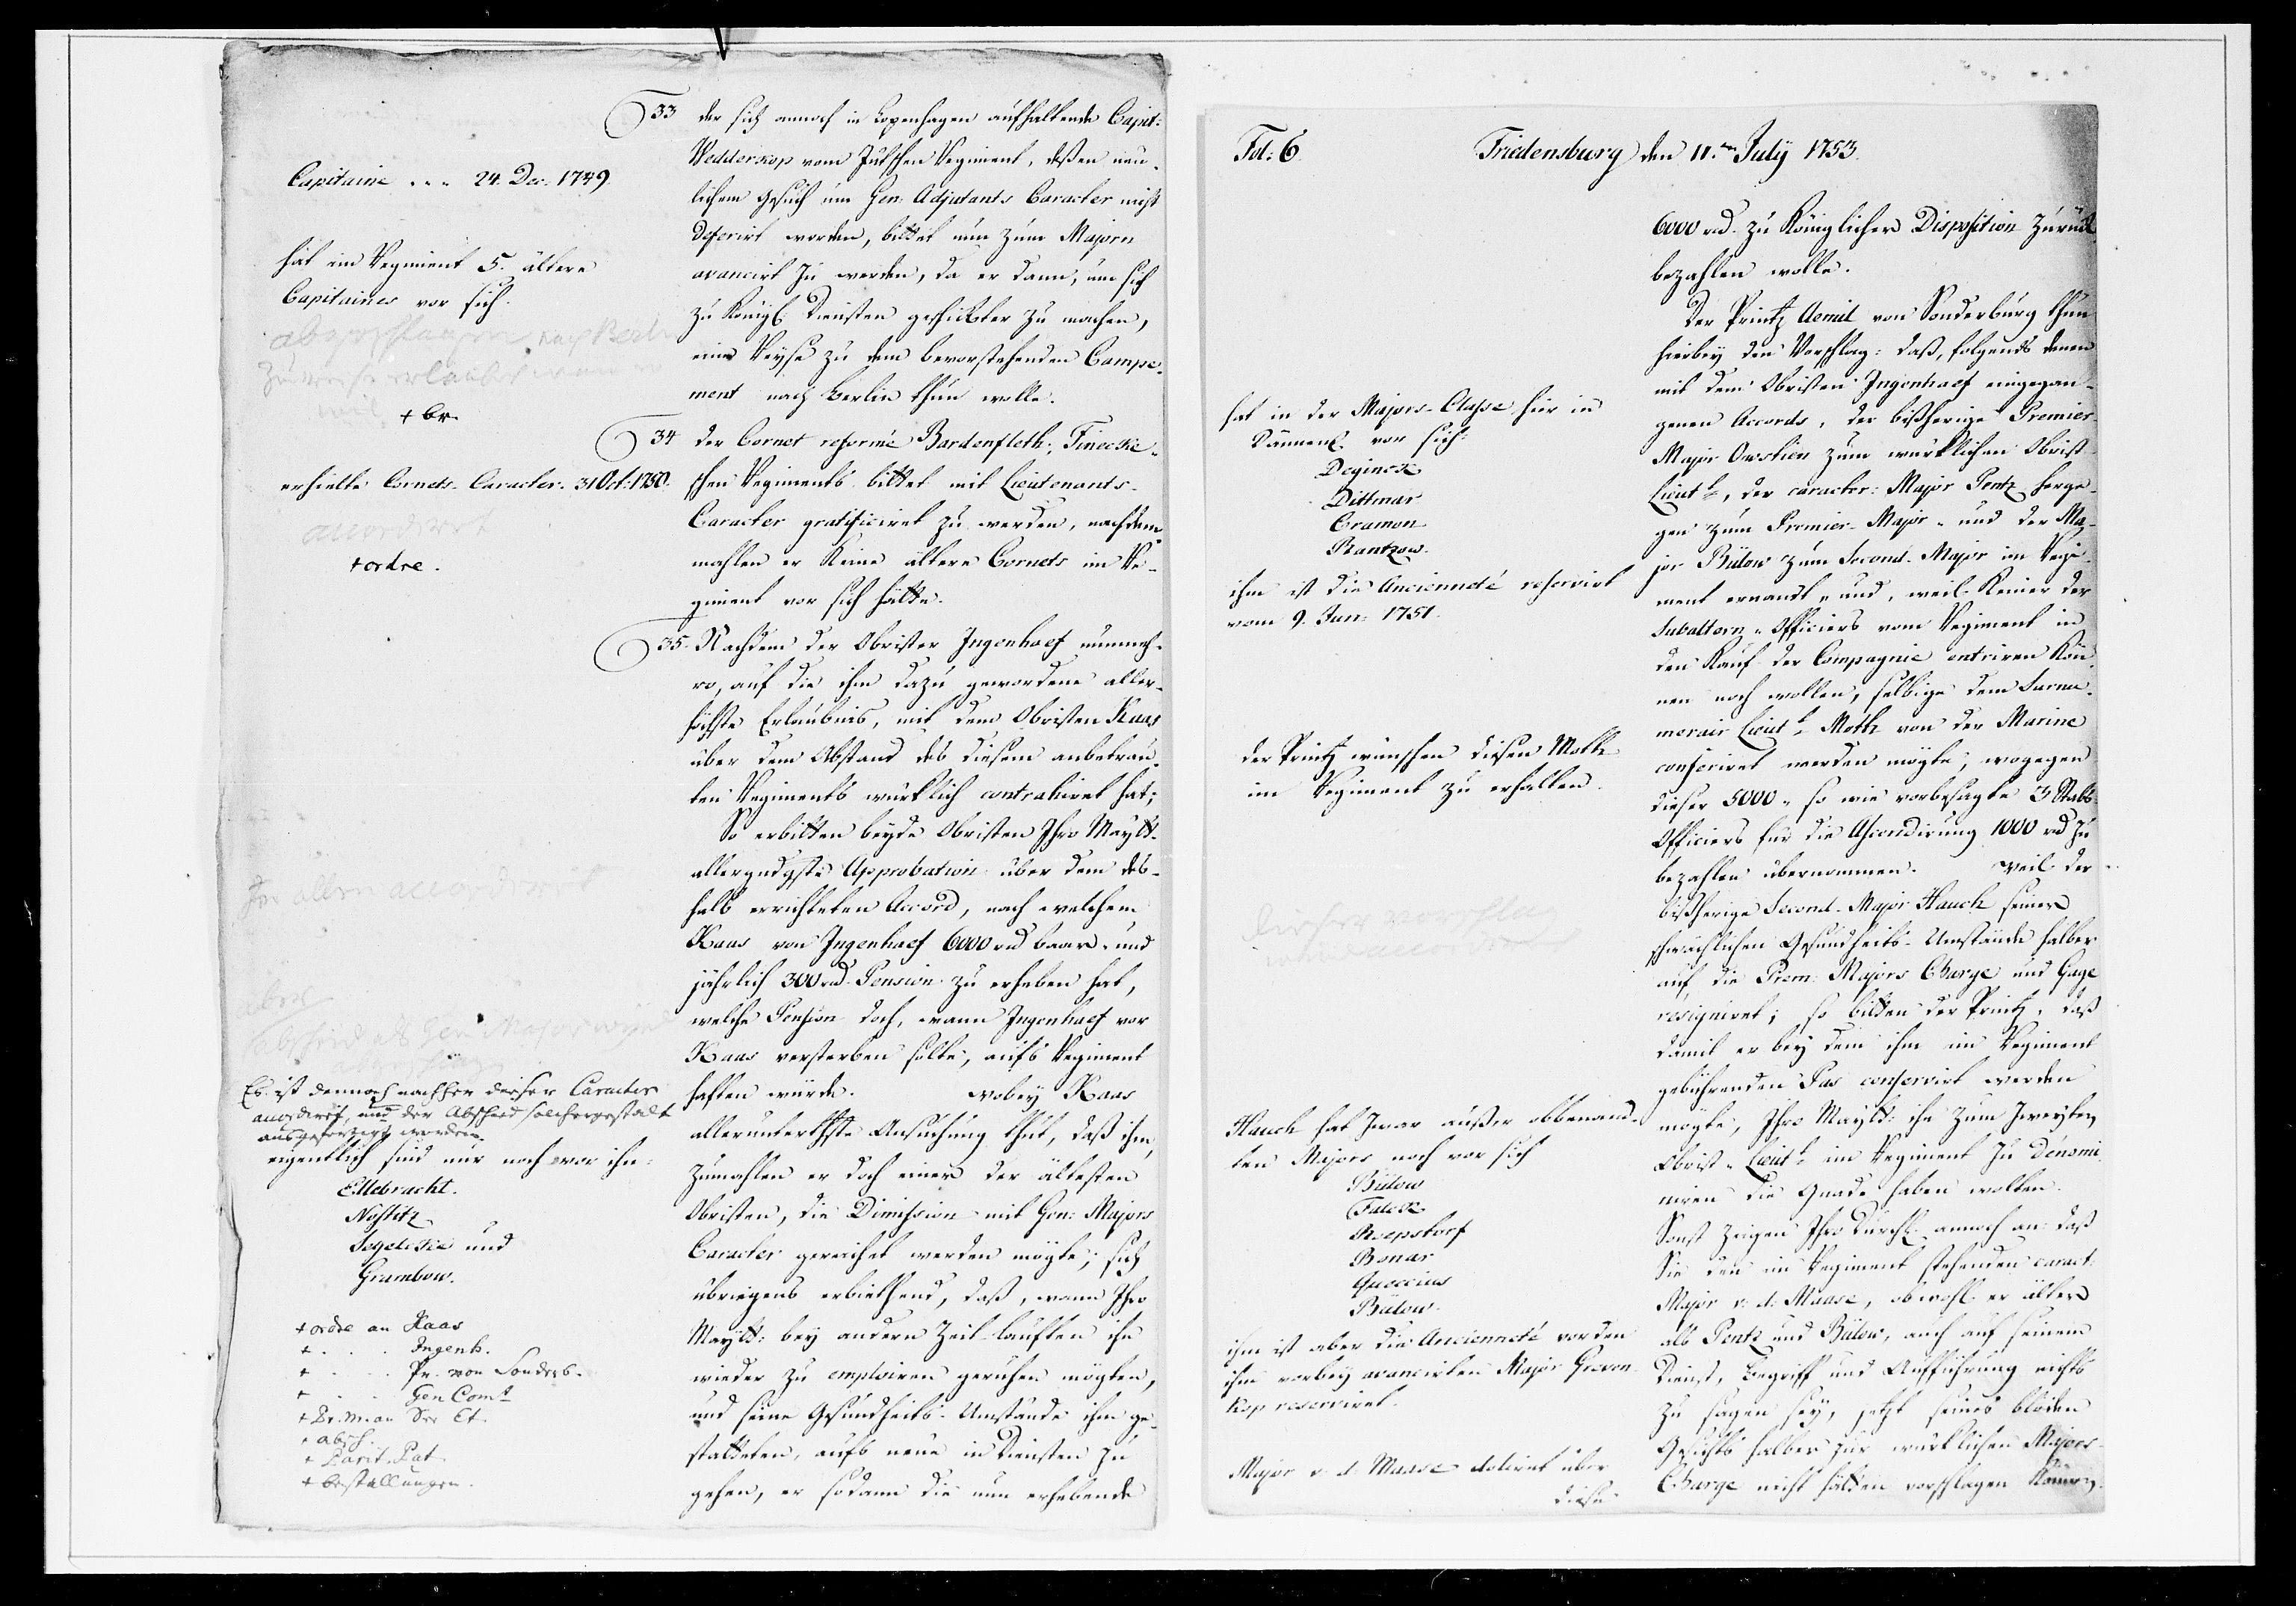 33 der sich annoch in Copenhagen aufhaltende Capit:
Wedderkop vom Jütschen Regiment, deßen neu-
lichem Gesuch um Gen: Adjutants Caracter nicht
deferirt worden, bittet nun zum Majorn
avancirt zu werden, da er dann, um sich
zu Königl: Diensten geschickter zu machen,
eine Reyse zu dem bevorstehenden Campe-
ment nach Berlin thun wolle.
Capitaine . . . 24. Dec. 1749.
hat im Regiment 5. ältere
Capitaines vor sich.
abgeschlagen nach Berlin
zu reise erlaubet wan er
wil
+ br.
34 der Cornet reformé Bardenfleth, Fineckie-
schen Regiments bittet mit Lieutenants-
Caracter gratificiret zu werden, nachdem-
mahlen er keine ältere Cornets im Re-
giment vor sich hätte.
erhielte Cornets-Caracter. 31 Oct: 1750.
accordirt
+ ordre.
35. Nachdem der Obrister Ingenhaef nunmeh-
ro, auf die ihm dazu gewordene aller-
höchste Erlaubnis, mit dem Obristen Kaas
über dem Abstand des diesem anbetrau-
ten Regiments würklich contrahiret hat;
So erbitten beyde Obristen Ihro Maytt.
allergndgste Approbation über dem des-
halb errichteten Accord, nach welchem
Kaas von Ingenhaef 6000 rd baar- und
jährlich 300 rd. Pension zu erheben hat,
welche Pension doch, wann Ingenhaef vor
Kaas versterben solte, aufs Regiment
haften würde. wobey Kaas
allerunterthste Ansuchung thut, daß ihm,
zumahlen er doch einer der ältesten
Obristen, die Dimission mit Gen: Majors
Caracter gereichet werden mögte; sich
übriegens erbiethend, daß, wann Ihro
Maytt: bey andern Zeit-läuften ihn
wieder zu emploiren geruhen mögten,
und seine Gesundheits-Umstände ihm ge-
statteten, aufs neue in Diensten zu
gehen, er sodann die nun erhebende
allen accordirt
aber
abschied als Gen Major wird
abgeschlag
Es ist dennoch nachher dieser Caracter
accordiret, und der Abscheid solchergestalt
ausgefertiget worden.
eigentlich sind nur noch vor ihn:
Ellebracht.
Nostitz
Segelcke und
Grambow.
+ ordre an Kaas
+ . . . Ingenh.
+ . . . Pr. von Sonderb.
+ . . . Gen Com.
+ Pr. M. an See Et.
+ absch.
+ Parit. Pat.
+ bestallungen.
Fol: 6. Friedensburg den 11.ten July 1753.
6000 rd. zu Königlicher Disposition zurück
bezahlen wolle.
Der Printz Aemil von Sonderburg thun
hierbey den Vorschlag: daß, folgends denen
mit dem Obristen Ingenhaef eingegan-
genen Accords, der bißherige Premier-
Major Owstien zum würklichen Obrist-
Lieutn, der caracter: Major Pentz herge-
gen zum Premier-Major- und der Ma-
jor Bülow zum Second-Major im Regi-
ment ernandt- und, weil keiner der
Subaltern-Officiers vom Regiment in
den Kauf der Compagnie entriren kön-
nen noch wollen, selbige dem Surnu-
merair Lieutn Moth von der Marine
conferiret werden mögte; wogegen
dieser 5000- so wie vorbesagte 3 Stabs
Officiers für die Ascendirung 1000 rd zu
bezahlen übernommen. weil der
bißherige Second-Major Hauch seiner
schwächlichen Gesundheits-Umstände halber
auf die Prem: Majors Charge und Gage
resigniret; so bitten der Printz, daß
damit er bey dem ihm im Regiment
gebührenden Pas conservirt werden
mögte, Ihro Maytt: ihn zum zweyten
Obrist-Lieutn im Regiment zu denomi-
niren die Gnade haben wolten.
Sonst zeigen Ihro Durchl: annoch an: daß
Sie den im Regiment stehenden caract:
Major v. d. Maase, obwohl er älter
als Pentz und Bülow, auch auf seinem
Dienst, Begriff und Aufführung nichts
zu sagen sey, jetzt seines blöden
Gesichts halber zur würklichen Majors-
Charge nicht hätten vorschlagen können.
hat in der Majors-Classe hier in
Dännem. vor sich:
Deginck
Dittmar
Cramon
Rantzow.
ihm ist die Ancienneté reservirt
vom 9. Jun: 1751.
der Printz wünschen diesen Moth
im Regiment zu erhalten.
dieser vorschlag
wird accordirt
Hauch hat zwar außer obbenand-
ten Majors noch vor sich
Bülow
Falck
Roepstorf
Bonar
Quoccius
Bülow.
ihm ist aber die Ancienneté vor den
ihm vorbey avancirten Major Greven-
kop reserviret.
Major v. d. Maase doliret über
diese